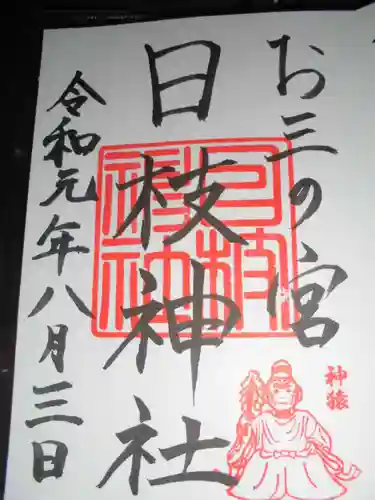 お三の宮
日枝神社
日枝神社
令和元年八月三日
神猿